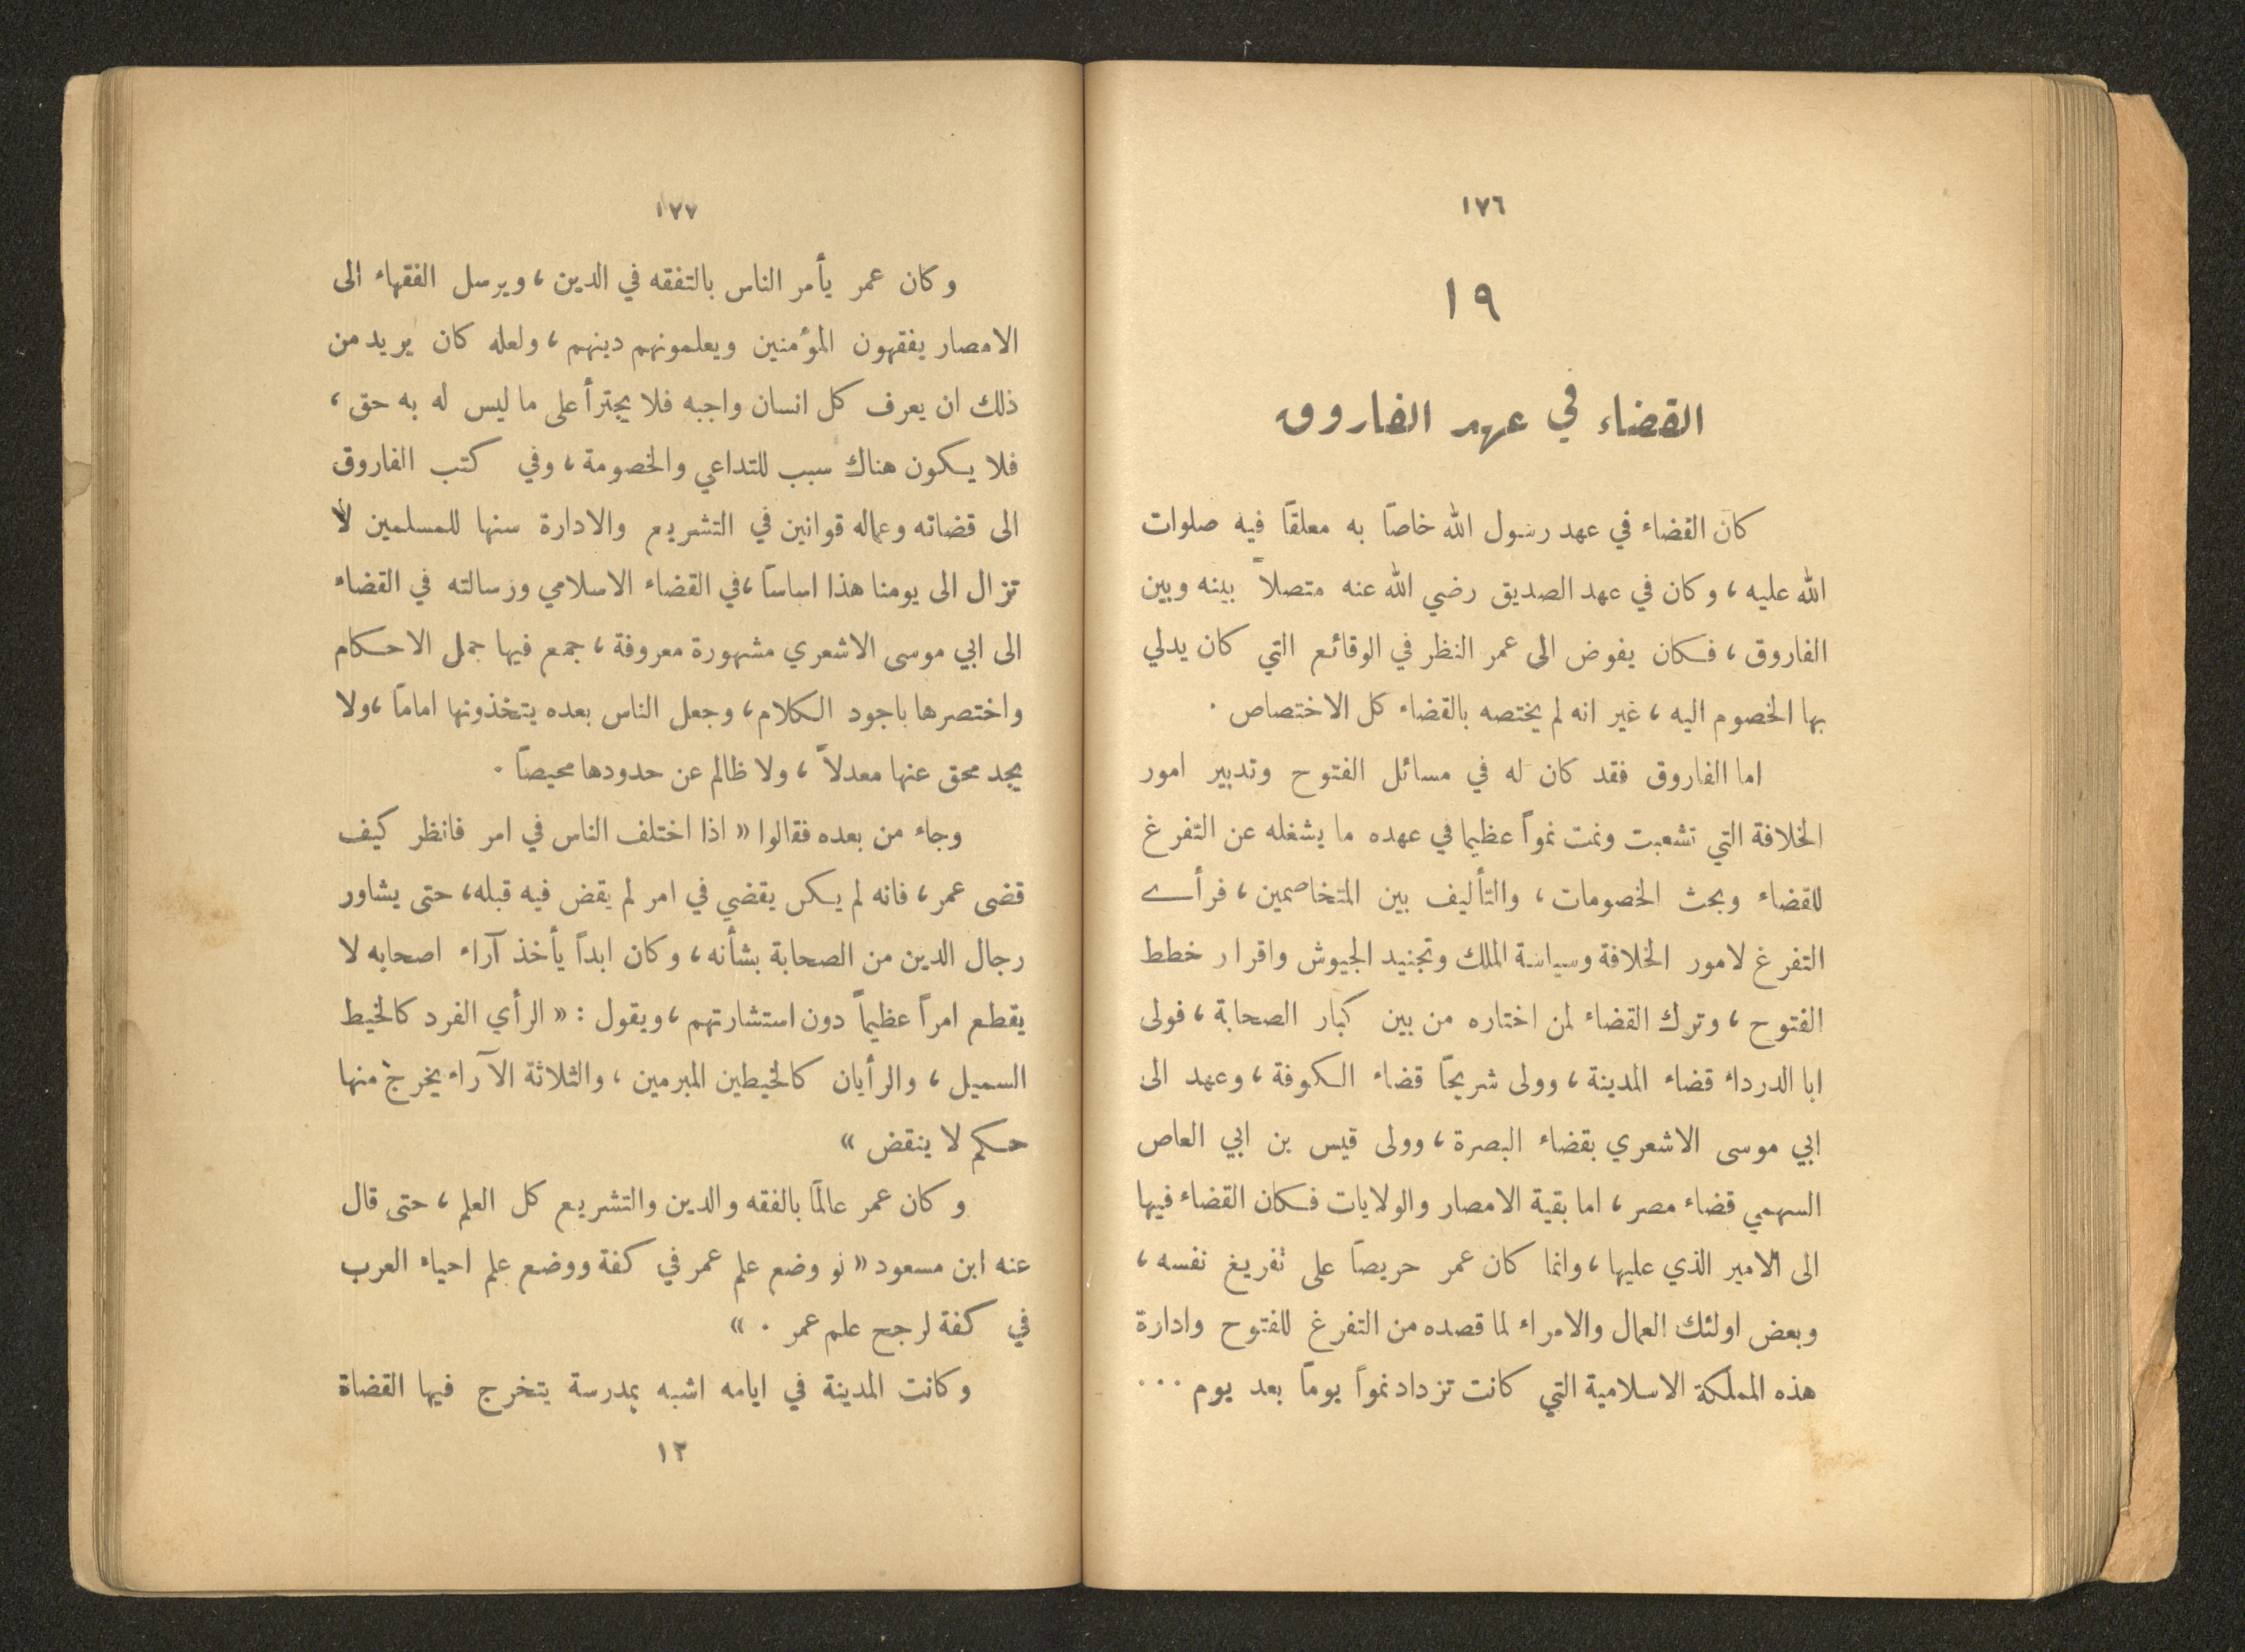 ١٧٦
١٩
القضاء في عهد الفاروق
كان القضاء في عهد رسول الله خاصاً به معلقاً فيه صلوات
الله عليه ، وكان في عهد الصديق رضي الله عنه متصلاً بينه وبين
الفاروق ، فكان يفوض الى عمر النظر في الوقائع التي كان يدلي
بها الخصوم اليه ، غير انه لم يختصه بالقضاء كل الاختصاص .
اما الفاروق فقد كان له في مسائل الفتوح وتدبير امور
الخلافة التي تشعبت ونمت نمواً عظيما في عهده ما يشغله عن التفرغ
للقضاء وبحث الخصومات ، والتأليف بين المتخاصمين ، فرأى
التفرغ لامور الخلافة وسياسة الملك وتجنيد الجيوش واقرار خطط
الفتوح ، وترك القضاء لمن اختاره من بين كبار الصحابة ، فولى
ابا الدرداء قضاء المدينة ، وولى شريحاً قضاء الكوفة ، وعهد الى
ابي موسى الاشعري بقضاء البصرة ، وولى قيس بن ابي العاص
السهمي قضاء مصر ، اما بقية الامصار والولايات فكان القضاء فيها
الى الامير الذي عليها ، وانما كان عمر حريصاً على تفريغ نفسه ،
وبعض اولئك العمال والامراء لما قصده من التفرغ للفتوح وادارة
هذه المملكة الاسلامية التي كانت تزداد نمواً يوماً بعد يوم ...
١٧٧
وكان عمر يأمر الناس بالتفقه في الدين ، ويرسل الفقهاء الى
الامصار يفقهون المؤمنين ويعلمونهم دينهم ، ولعله كان يريد من
ذلك ان يعرف كل انسان واجبه فلا يجترأ على ما ليس له به حق ،
فلا يكون هناك سبب للتداعي والخصومة ، وفي كتب الفاروق
الى قضاته وعماله قوانين في التشريع والادارة سنها للمسلمين لا
تزال الى يومنا هذا اساساً ، في القضاء الاسلامي ورسالته في القضاء
الى ابي موسى الاشعري مشهورة معروفة ، جمع فيها جمل الاحكام
واختصرها باجود الكلام ، وجعل الناس بعده يتخذونها اماماً ، ولا
يجد محق عنها معدلاً ، ولا ظالم عن حدودها محيصاً .
وجاء من بعده فقالوا « اذا اختلف الناس في امر فانظر كيف
قضى عمر ، فانه لم يكن يقضي في امر لم يقض فيه قبله ، حتى يشاور
رجال الدين من الصحابة بشأنه ، وكان ابداً يأخذ آراء اصحابه لا
يقطع امراً عظيماً دون استشارتهم ، ويقول : « الرأي الفرد كالخيط
السميل ، والرأيان كالخيطين المبرمين ، والثلاثة الآراء يخرج منها
حكم لا ينقض »
وكان عمر عالماً بالفقه والدين والتشريع كل العلم ، حتى قال
عنه ابن مسعود « لو وضع علم عمر في كفة ووضع علم احياء العرب
في كفة لرجح علم عمر . »
وكانت المدينة في ايامه اشبه بمدرسة يتخرج فيها القضاة
١٢